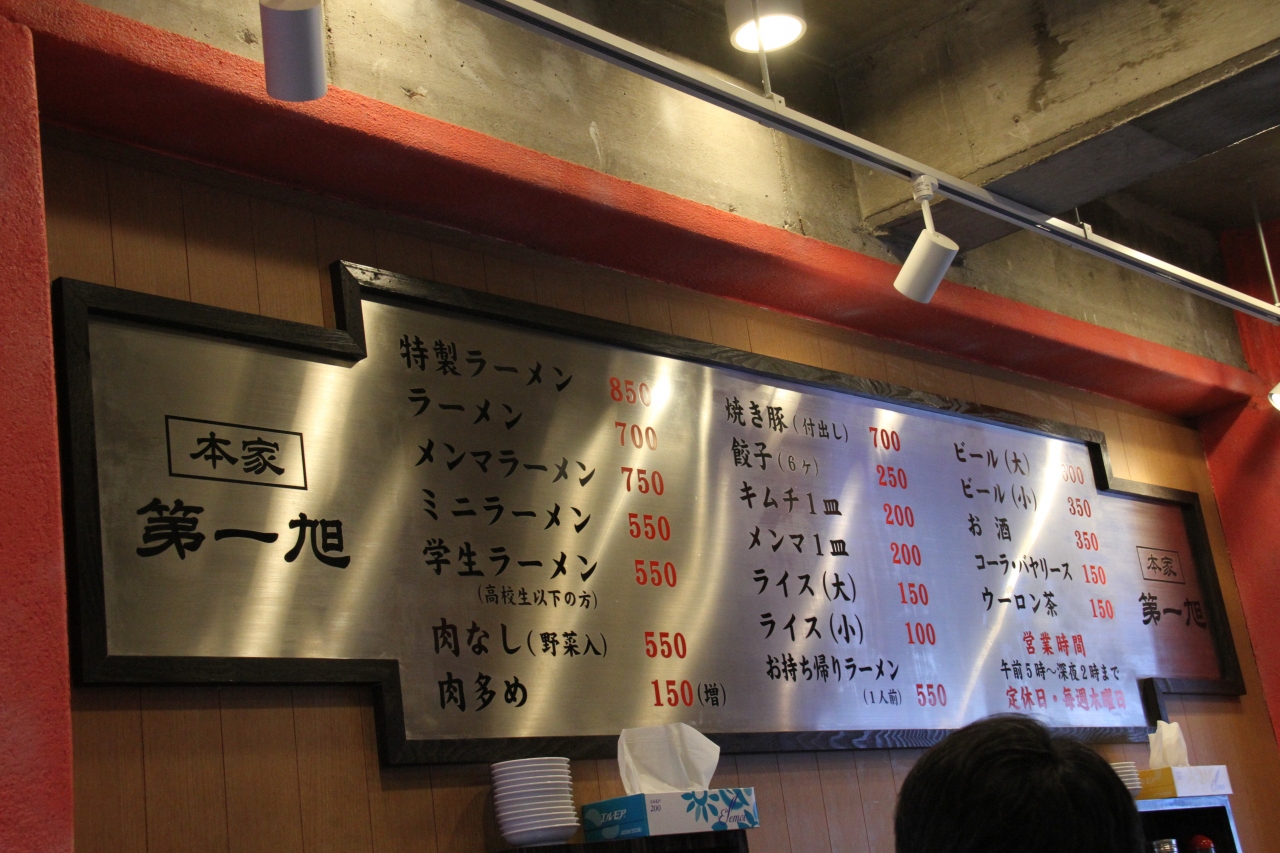 本家
第一旭
特製ラーメン 850
ラーメン 700
メンマラーメン 750
ミニラーメン 550
学生ラーメン 550
(高校生以下の方)
肉なし(野菜入) 550
肉多め 150(増)
焼き豚(付出し) 700
餃子(6ヶ) 250
キムチ1皿 200
メンマ1皿 200
ライス(大) 150
ライス(小) 100
お持ち帰りラーメン
(1人前) 550
ビール(大)
ビール(小) 350
お酒 350
コーラ・バヤリース 150
ウーロン茶 150
営業時間
午前5時〜深夜2時まで
定休日・毎週木曜日
本家
第一旭
エルモア
200